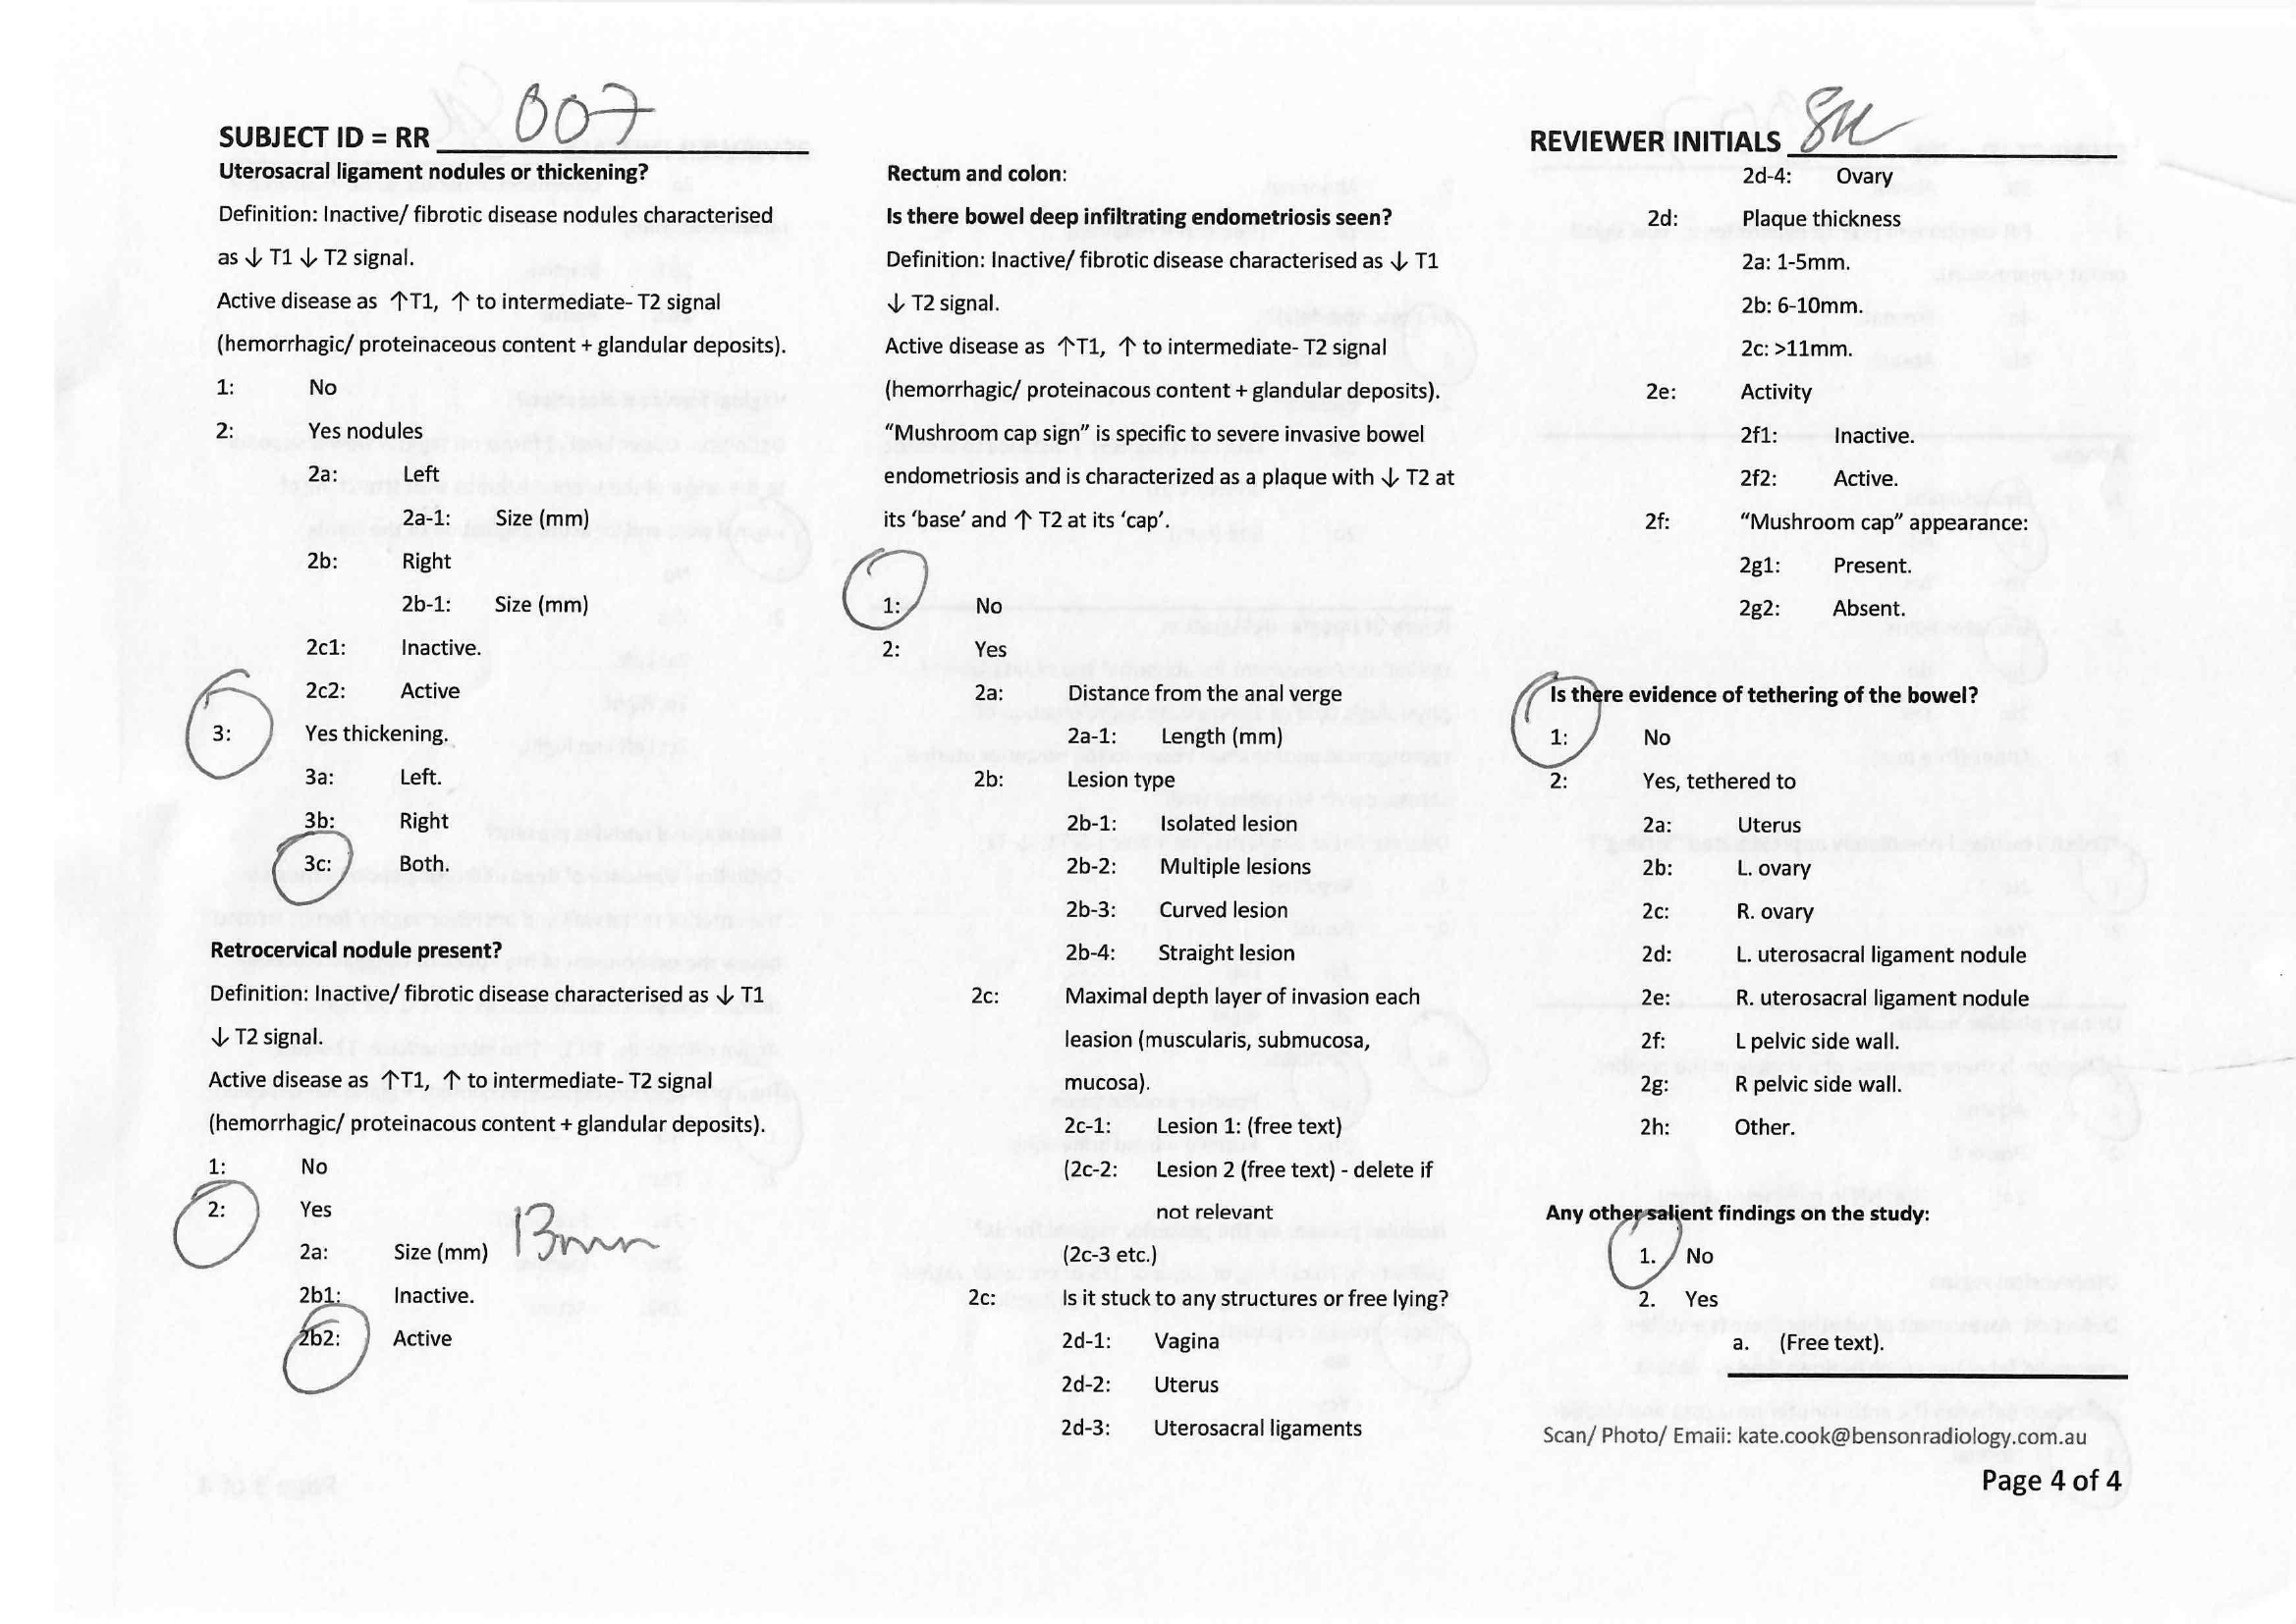 SUBJECT ID = RR 007
Uterosacral ligament nodules or thickening?
Definition: Inactive/ fibrotic disease nodules characterised
as ↓ T1 ↓ T2 signal.
Active disease as ↑T1, ↑ to intermediate- T2 signal
(hemorrhagic/ proteinaceous content + glandular deposits).
1: No
2: Yes nodules
2a: Left
2a-1: Size (mm)
2b: Right
2b-1: Size (mm)
2c1: Inactive.
2c2: Active
3: Yes thickening.
3a: Left.
3b: Right
3c: Both.
Retrocervical nodule present?
Definition: Inactive/ fibrotic disease characterised as ↓ T1
↓ T2 signal.
Active disease as ↑T1, ↑ to intermediate- T2 signal
(hemorrhagic/ proteinacous content + glandular deposits).
1: No
2: Yes
2a: Size (mm) 13mm
2b1: Inactive.
2b2: Active
Rectum and colon:
Is there bowel deep infiltrating endometriosis seen?
Definition: Inactive/ fibrotic disease characterised as ↓ T1
↓ T2 signal.
Active disease as ↑T1, ↑ to intermediate- T2 signal
(hemorrhagic/ proteinacous content + glandular deposits).
“Mushroom cap sign” is specific to severe invasive bowel
endometriosis and is characterized as a plaque with ↓ T2 at
its ‘base’ and ↑ T2 at its ‘cap’.
1: No
2: Yes
2a: Distance from the anal verge
2a-1: Length (mm)
2b: Lesion type
2b-1: Isolated lesion
2b-2: Multiple lesions
2b-3: Curved lesion
2b-4: Straight lesion
2c: Maximal depth layer of invasion each
leasion (muscularis, submucosa,
mucosa).
2c-1: Lesion 1: (free text)
(2c-2: Lesion 2 (free text) - delete if
not relevant
(2c-3 etc.)
2c: Is it stuck to any structures or free lying?
2d-1: Vagina
2d-2: Uterus
2d-3: Uterosacral ligaments
REVIEWER INITIALS
2d-4: Ovary
2d: Plaque thickness
2a: 1-5mm.
2b: 6-10mm.
2c: >11mm.
2e: Activity
2f1: Inactive.
2f2: Active.
2f: “Mushroom cap” appearance:
2g1: Present.
2g2: Absent.
Is there evidence of tethering of the bowel?
1: No
2: Yes, tethered to
2a: Uterus
2b: L. ovary
2c: R. ovary
2d: L. uterosacral ligament nodule
2e: R. uterosacral ligament nodule
2f: L pelvic side wall.
2g: R pelvic side wall.
2h: Other.
Any other salient findings on the study:
1. No
2. Yes
a. (Free text).
Scan/ Photo/ Email: kate.cook@bensonradiology.com.au
Page 4 of 4